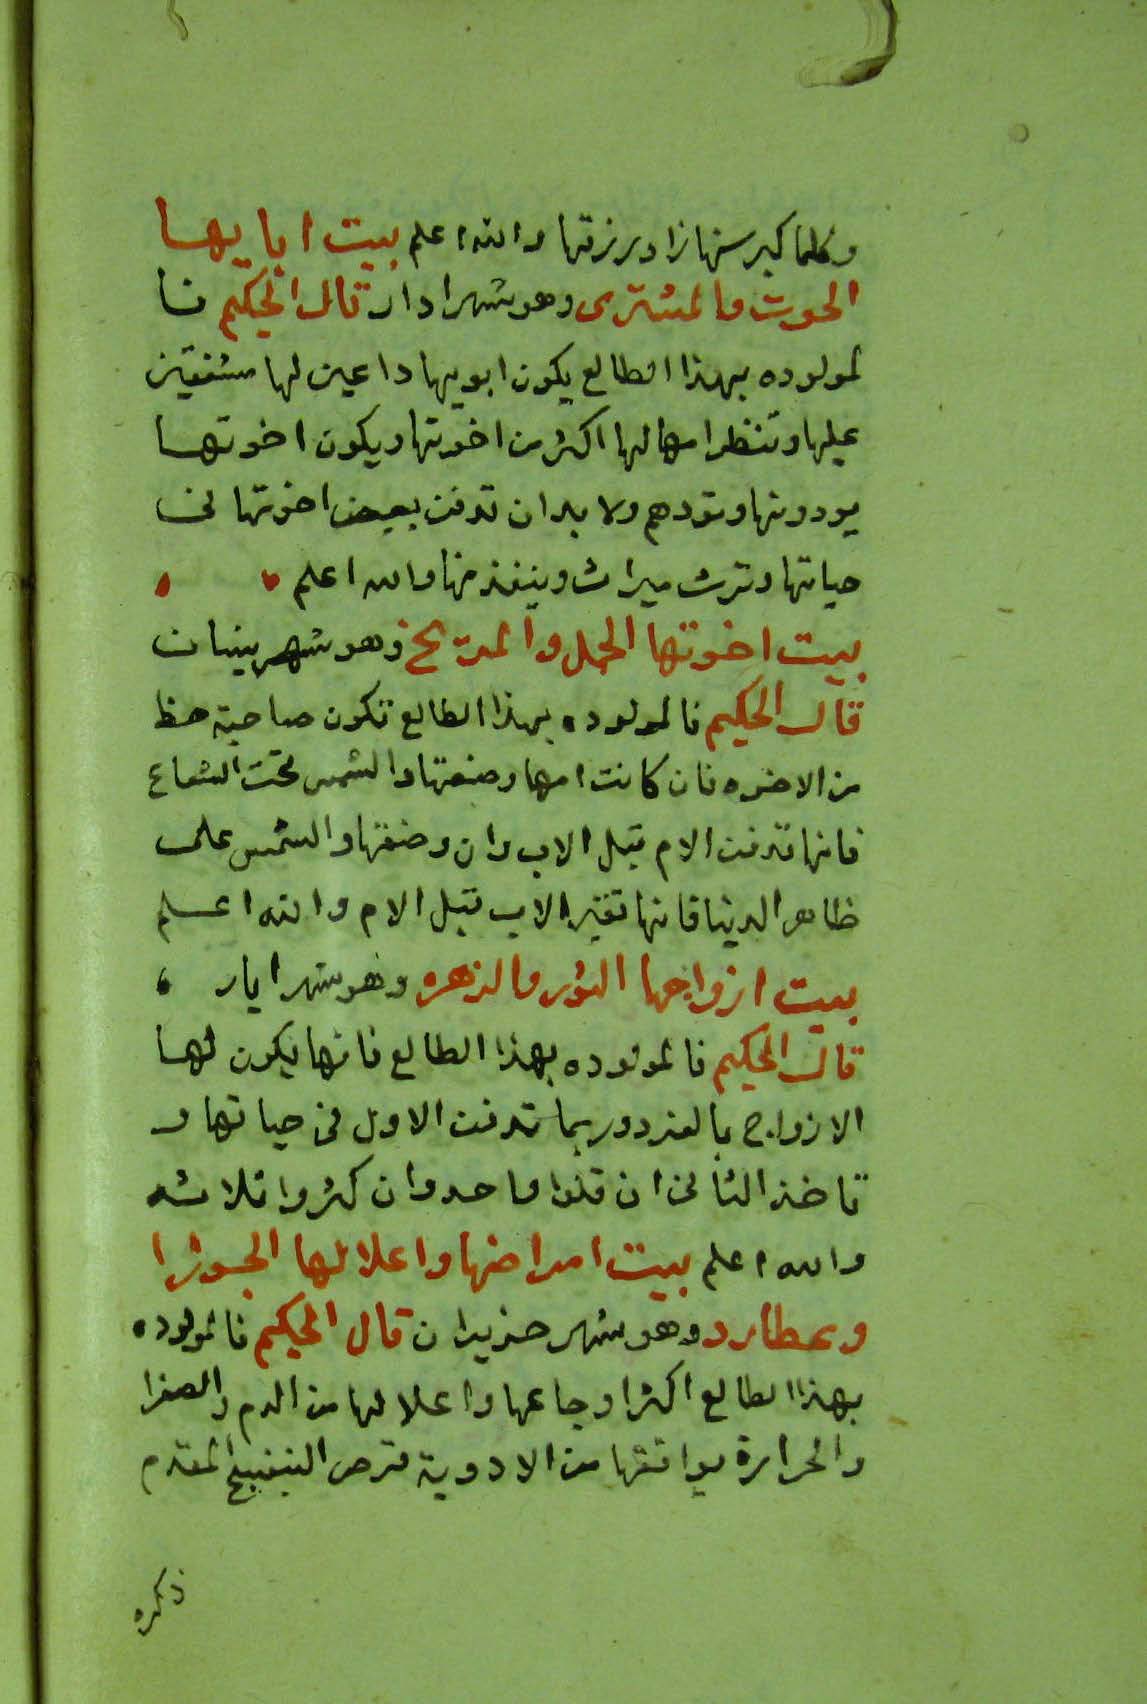 وكلما كبر سنها زاد رزقها والله اعلم بيت ابايها
الحوت والمشتري وهو شهر ادار قال الحكيم فا
لمولوده بهذا الطالع يكون ابويها داعين لها مشفقين
عليها وتنظر امها لها اكثر من اخوتها ويكون اخوتها
يودونها وتودهم ولا بد ان تدفن بعض اخوتها في
حياتها وترث ميراث وينفذ منها والله اعلم
بيت اخوتها الحمل والمريخ وهو شهر نيسان
قال الحكيم فالمولوده بهذا الطالع تكون صاحبة حظ
من الاخوه فان كانت امها وضعتها والشمس تحت الشعاع
فانها تدفن الام قبل الاب وان وضعتها والشمس على
ظاهر الدنيا فانها تقبر الاب قبل الام والله اعلم
بيت ازواجها الثور والزهره وهو شهر ايار
قال الحكيم فالمولوده بهذا الطالع فانها يكون لها
الازواج بالفرد وربما تدفن الاول في حياتها و
تاخذ الثاني ان قلوا واحد وان كثروا ثلاثه
والله اعلم بيت امراضها واعلالها الجوزا
وعطارد وهو شهر حزيران قال الحكيم فالمولوده
بهذا الطالع اكثر اوجاعها واعلالها من الدم والصفرا
والحرارة يوافقها من الادوية قرص البنفسج المقدم
ذكره